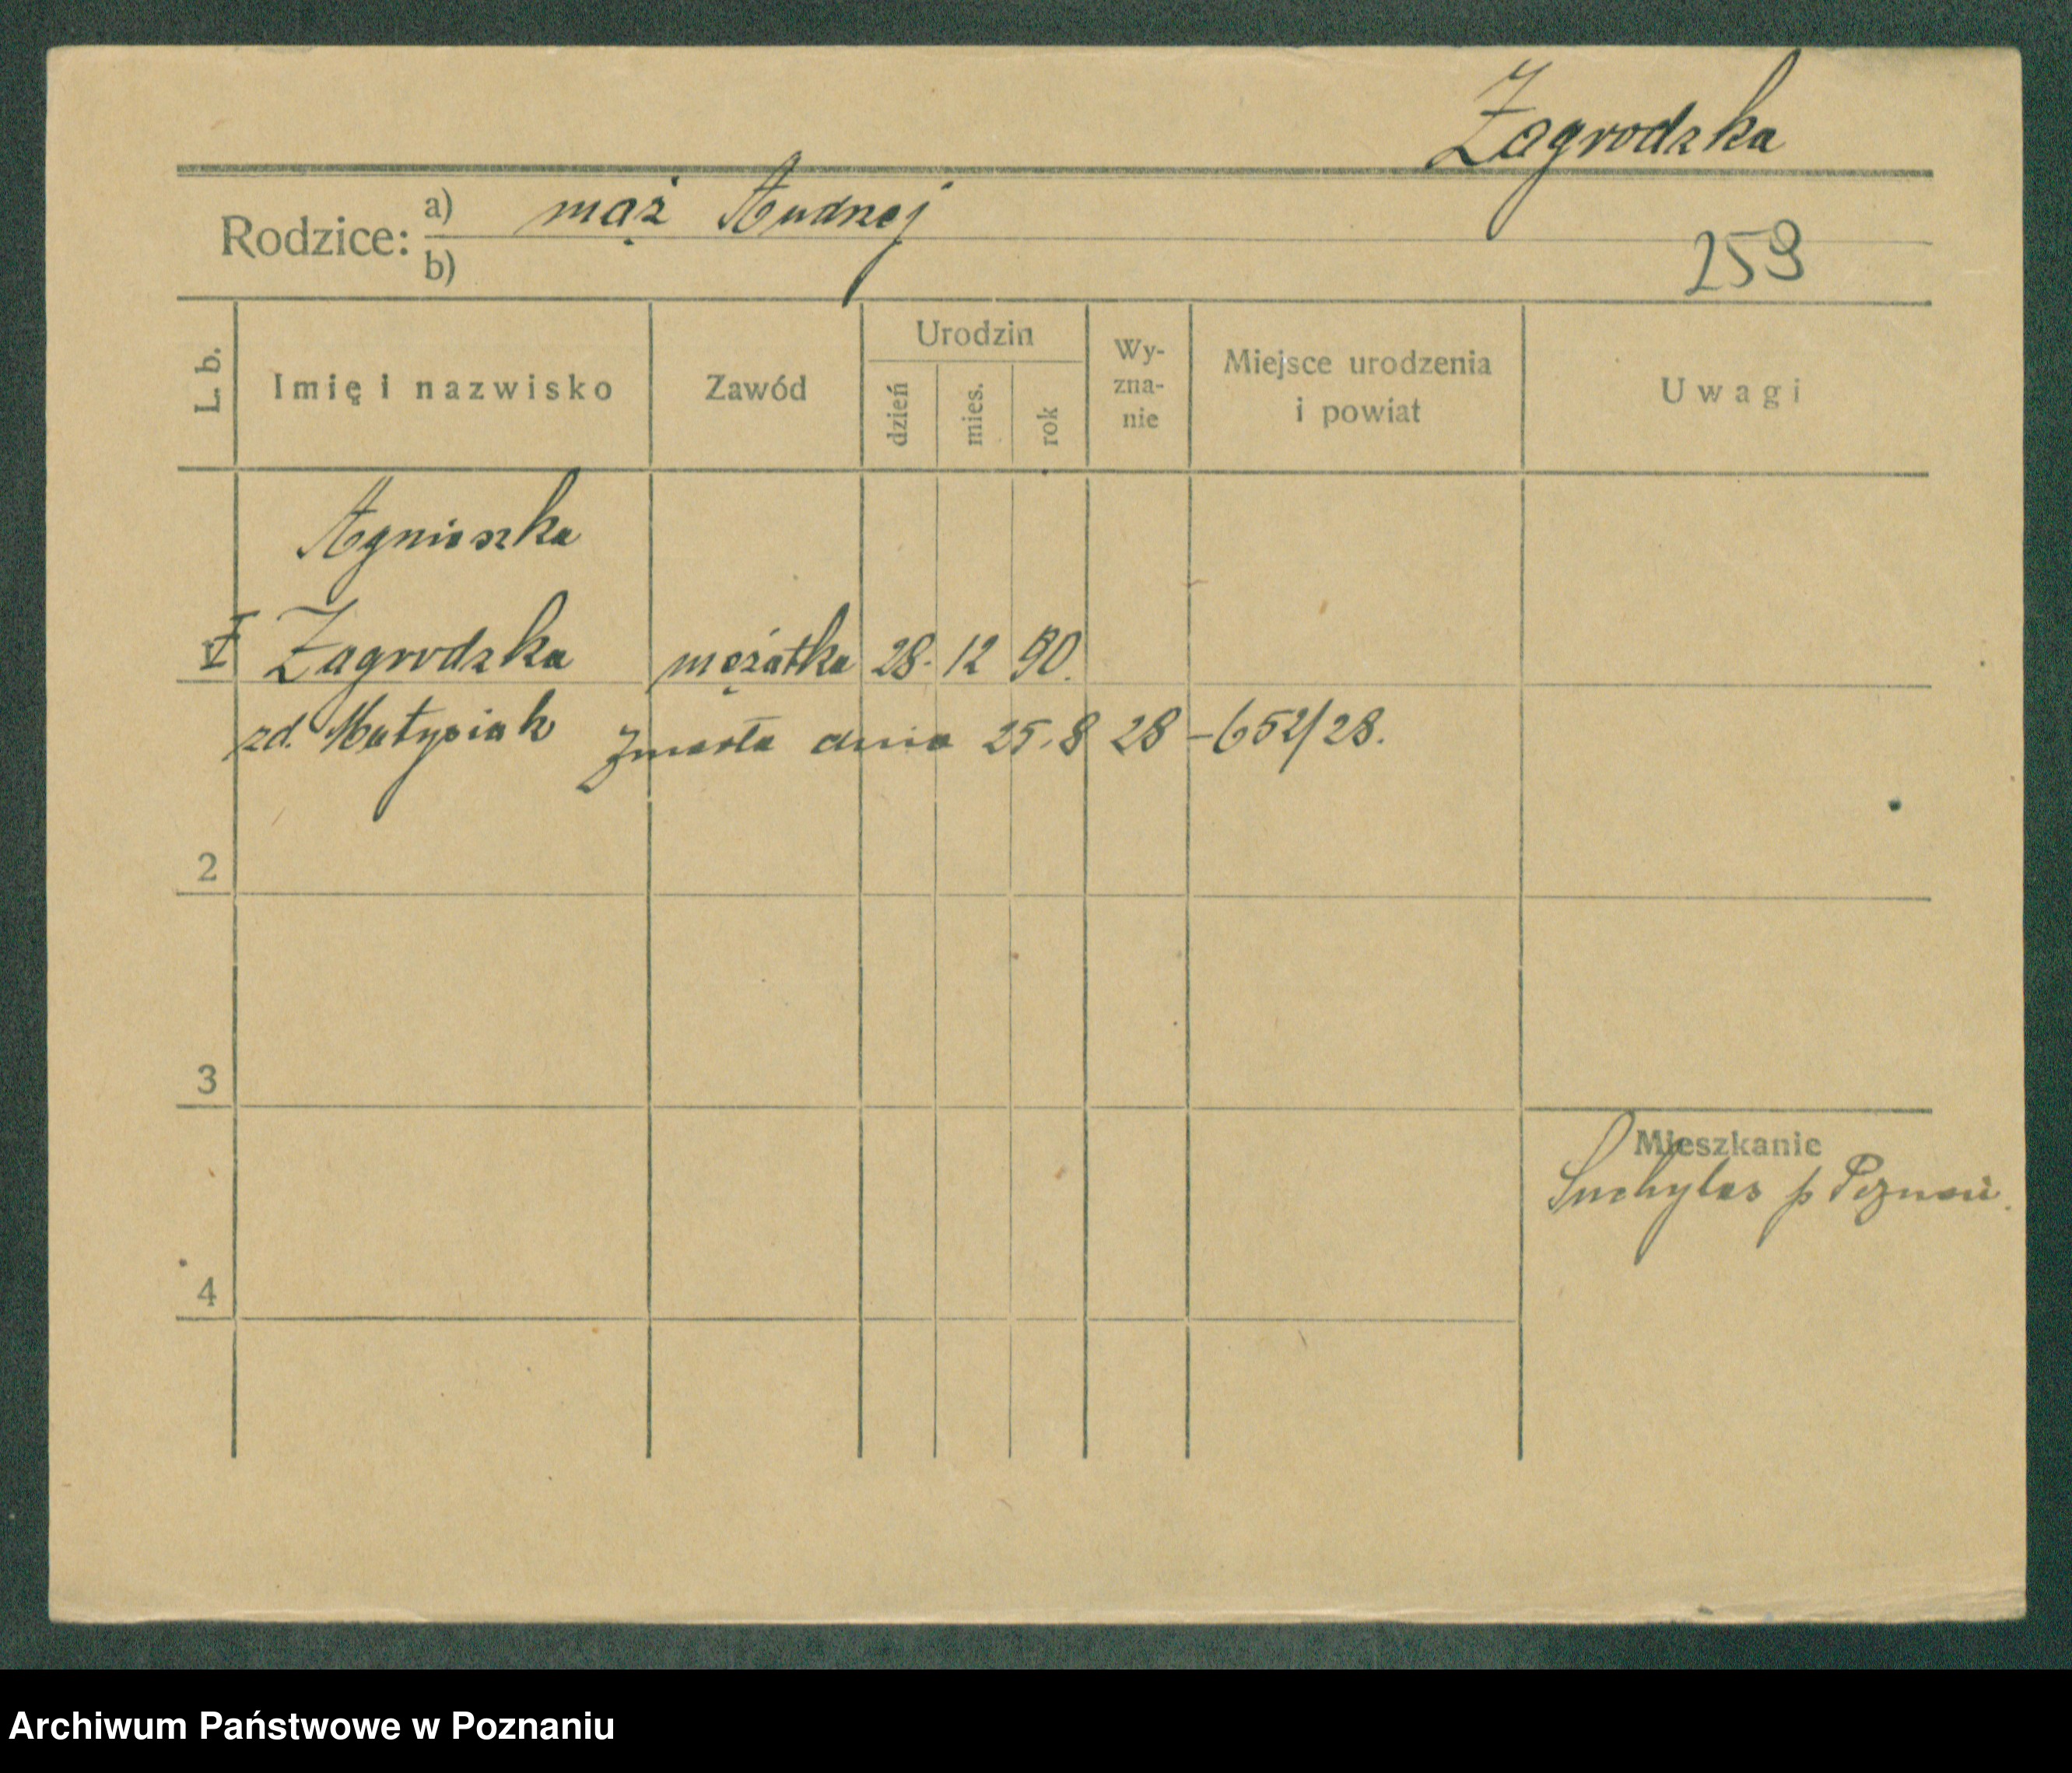 Zagrodzka
Rodzice: a) mąż Andrzej
b)
259
L. b.
Imię i nazwisko
Zawód
Urodzin
dzień
mies.
rok
Wy-
zna-
nie
Miejsce urodzenia
i powiat
Uwagi
Agnieszka
Zagrodzka mężatka 28. 12 90.
zd. Matysiak zmarła dnia 25.8 28 – 652/28.
2
3
Mieszkanie
Suchylas p Poznań.
4
Archiwum Państwowe w Poznaniu